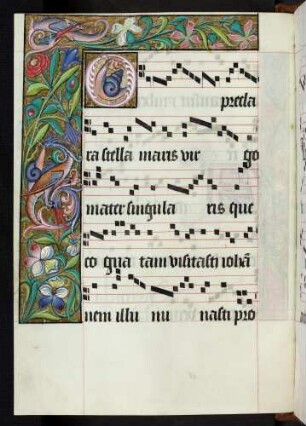 O precla
ra stella maris vir go
mater singula ris que
co gna tam visitasti iohā
nem illu mi nasti pro